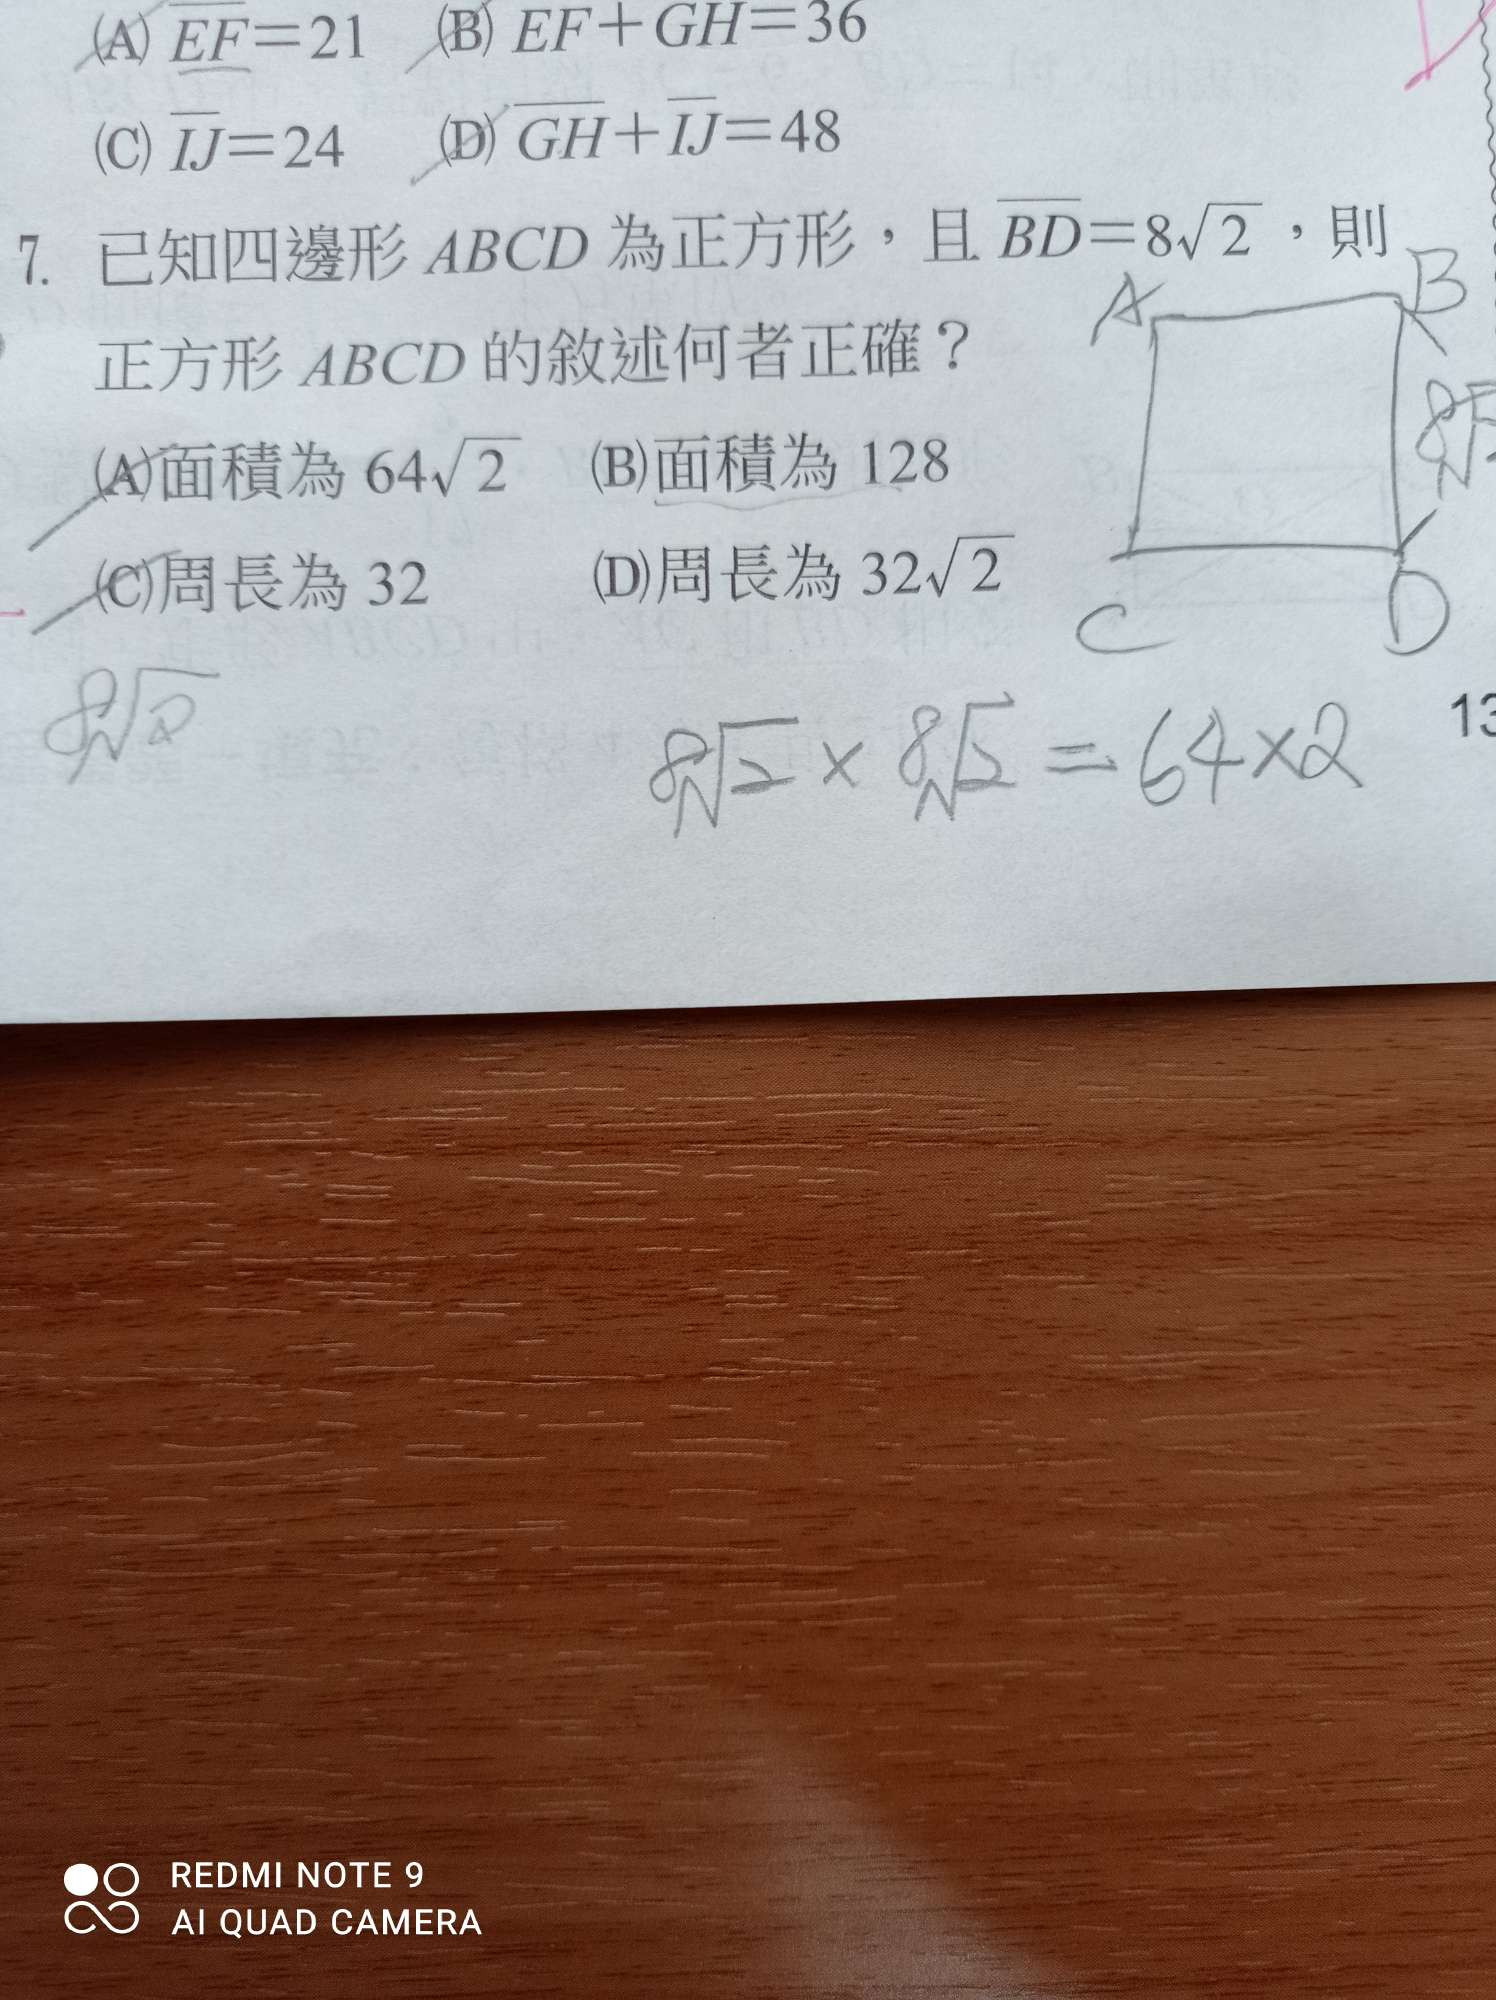 (A) EF=21 (B) EF+GH=36
(C) IJ=24 (D) GH+IJ=48
7. 已知四邊形 ABCD 為正方形，且 BD=8√2，則
正方形 ABCD 的敘述何者正確？
(A)面積為 64√2 (B)面積為 128
(C)周長為 32 (D)周長為 32√2
A B
8√
C D
8√2
8√2 × 8√2 = 64×2
13
REDMI NOTE 9
AI QUAD CAMERA